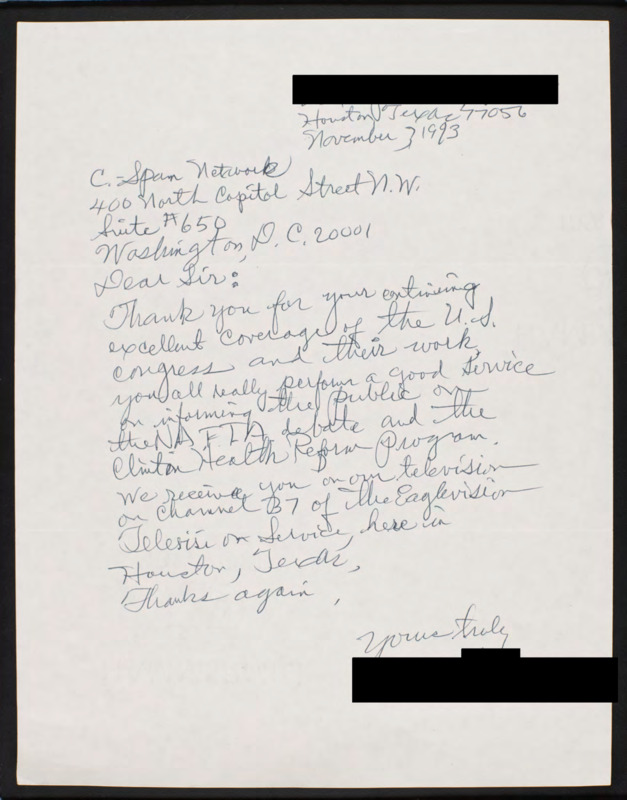 Houston, Texas 77056
November 3, 1993
C.-Span Network
400 North Capitol Street N.W.
Suite #650
Washington, D.C. 20001
Dear Sir:
Thank you for your continuing
excellent coverage of the U.S.
congress and their work,
you all really perform a good service
on informing the public on
the NAFTA debate and the
Clinton Health Reform Program.
We receive you on our television
on channel B7 of the Eaglevision
Television Service, here in
Houston, Texas,
Thanks again,
Yours truly